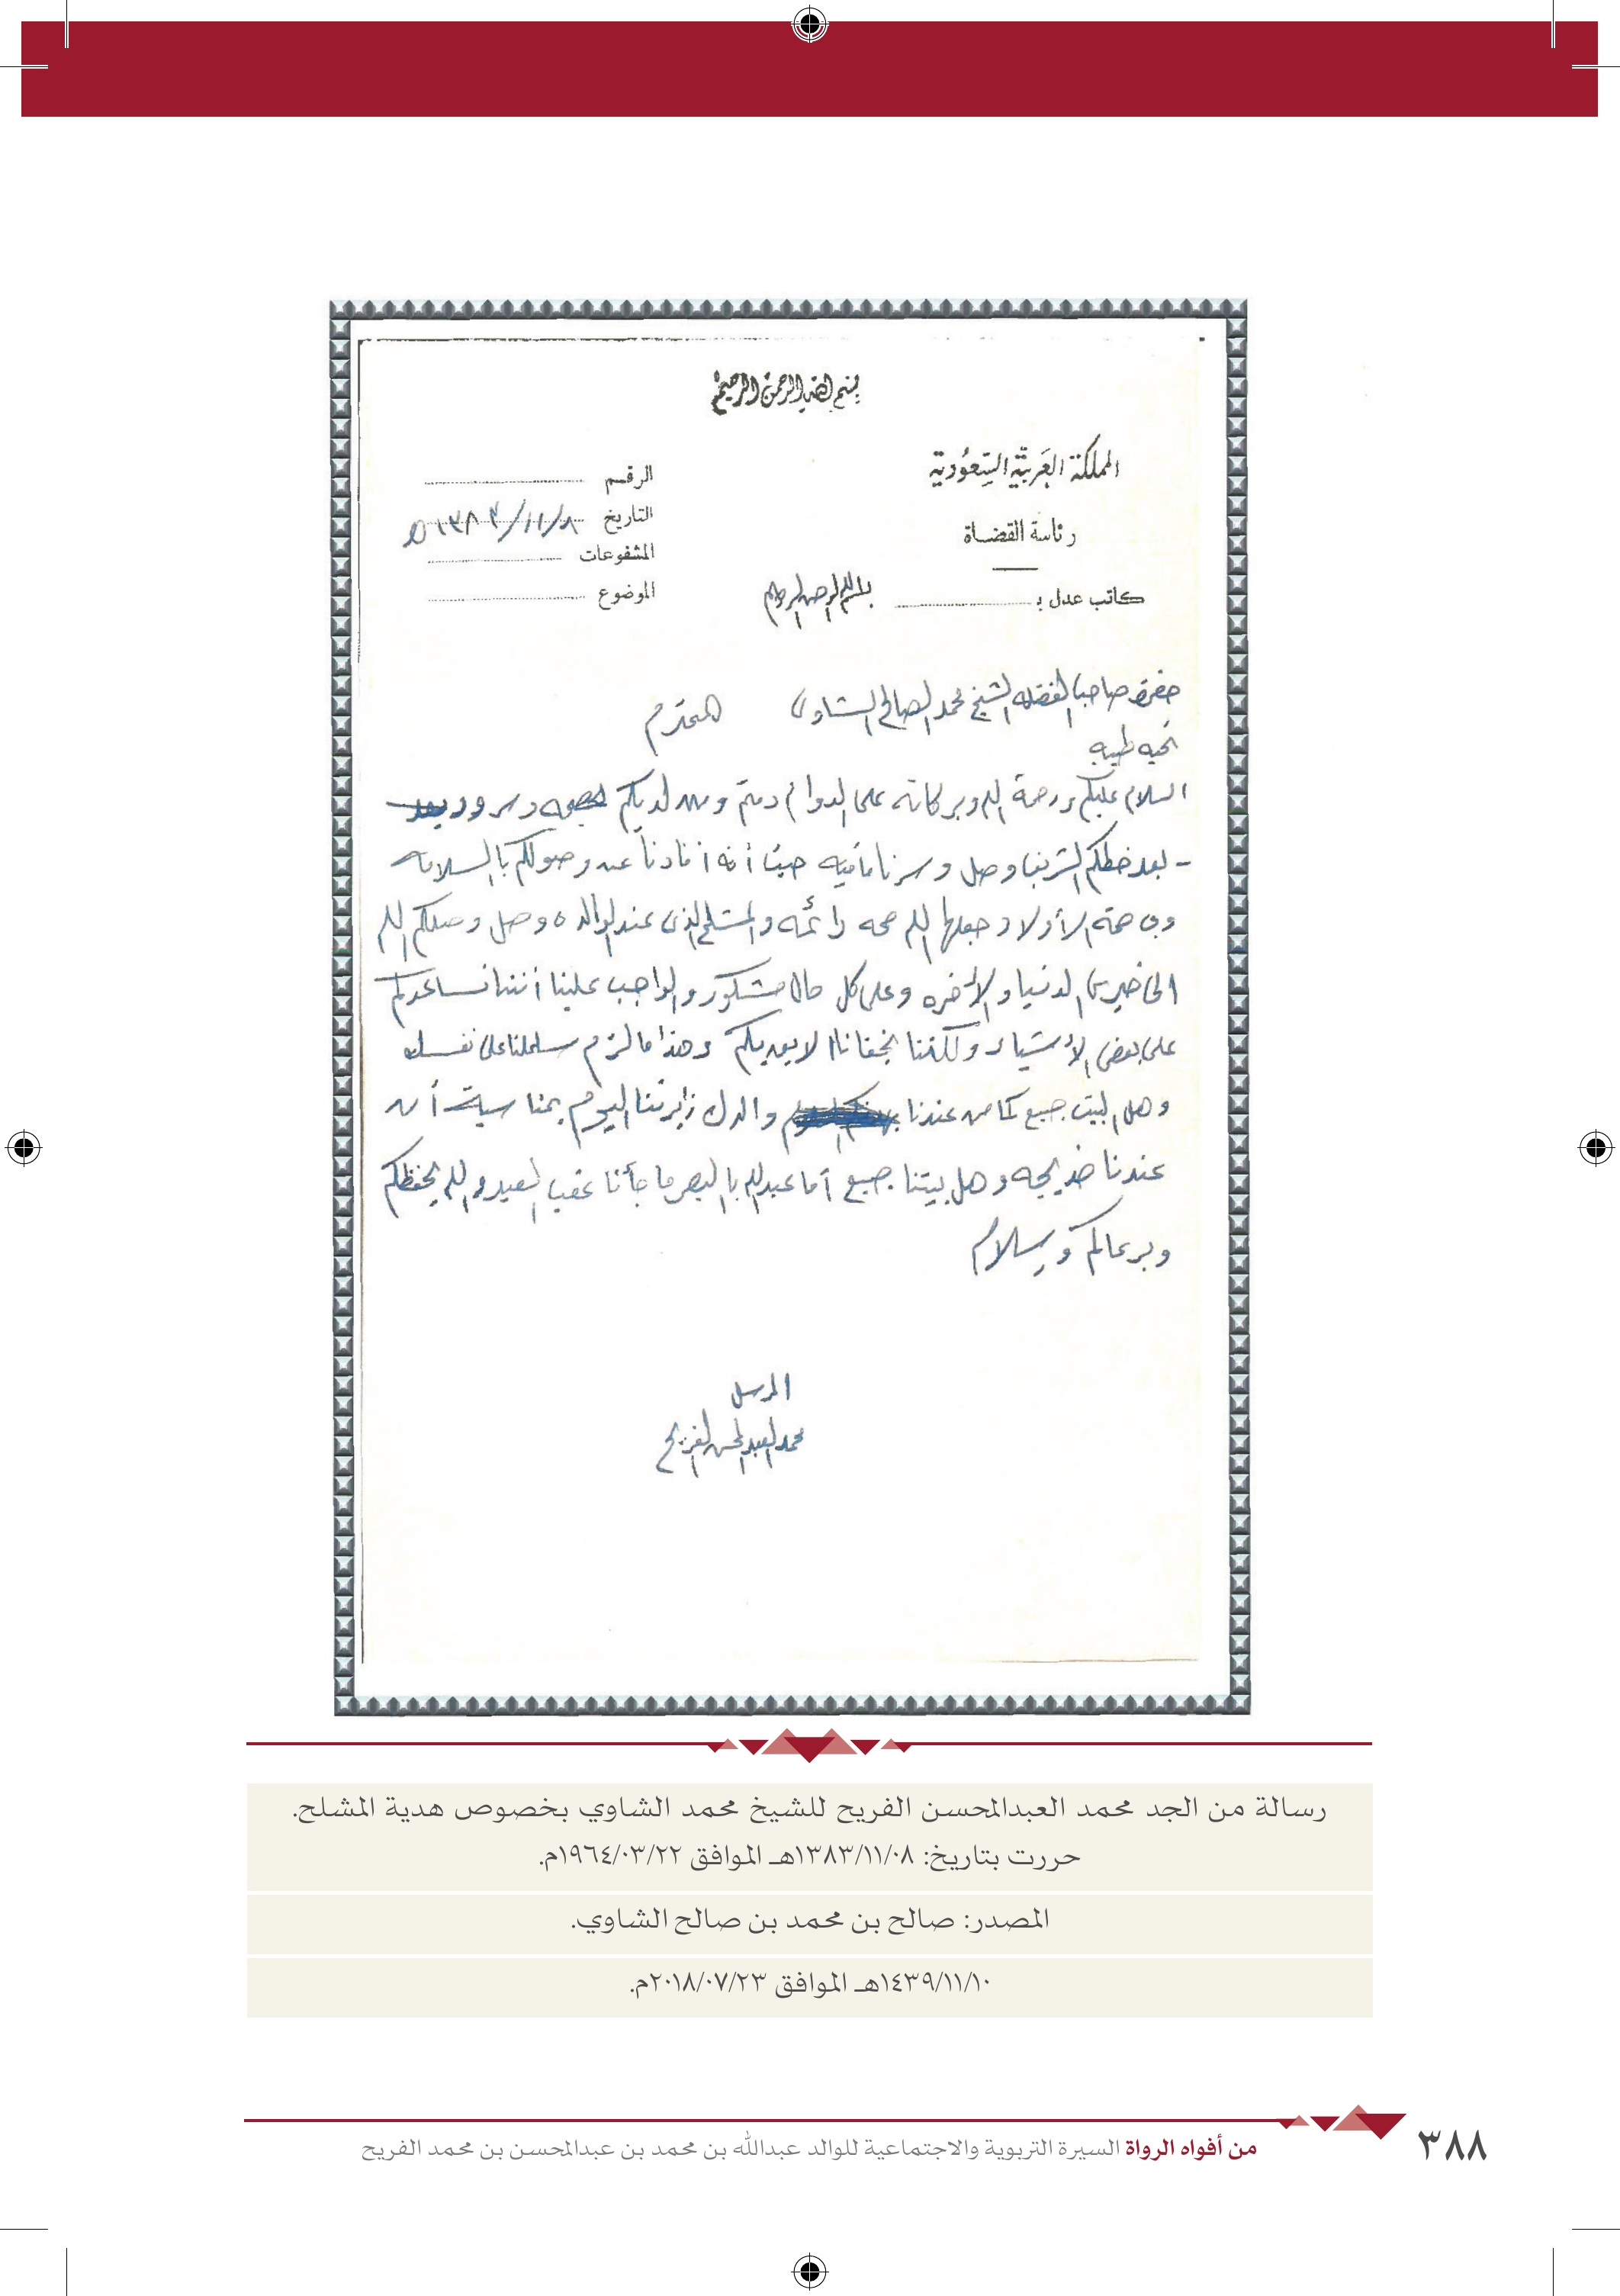 بسم الله الرحمن الرحيم
المملكة العربية السعودية
رئاسة القضاة
كاتب عدل بـ
الرقم
التاريخ ١٣٨٣/١١/٨هـ
المشفوعات
الموضوع
بسم الله الرحمن الرحيم
حضرة صاحب الفضيلة الشيخ محمد الصالح الشاوي المحترم
تحيه طيبه
السلام عليكم ورحمة الله وبركاته على الدوام دمتم ومن لديكم بصحه وسرور
- بعد خطكم الشريف وصل وسرنا مافيه حيث أنه أفادنا عن وصولكم بالسلامه
وعن صحة الأولاد جعلها الله صحه دائمه والمشلح الذي عند الوالده وصل وصلكم الله
الى خيري الدنيا والأخره وعلى كل حال مشكور والواجب علينا أننا نساعدكم
على بعض الأشياء ولكننا بخفانا لا يديكم وهذا ما لزم سلملنا على نفسك
وهل البيت جميع كما من عندنا والدك زايرتنا اليوم بمناسبة أن
عندنا خديجه وهل بيتنا جميع أما عبدالله بالبصر ما جأنا عقب العيد والله يحفظكم
ويرعاكم والسلام
المرسل
محمد العبدالمحسن الفريح
رسالة من الجد محمد العبدالمحسن الفريح للشيخ محمد الشاوي بخصوص هدية المشلح.
حررت بتاريخ: ١٣٨٣/١١/٠٨هـ الموافق ١٩٦٤/٠٣/٢٢م.
المصدر: صالح بن محمد بن صالح الشاوي.
١٤٣٩/١١/١٠هـ الموافق ٢٠١٨/٠٧/٢٣م.
من أفواه الرواة السيرة التربوية والاجتماعية للوالد عبدالله بن محمد بن عبدالمحسن بن محمد الفريح
٣٨٨